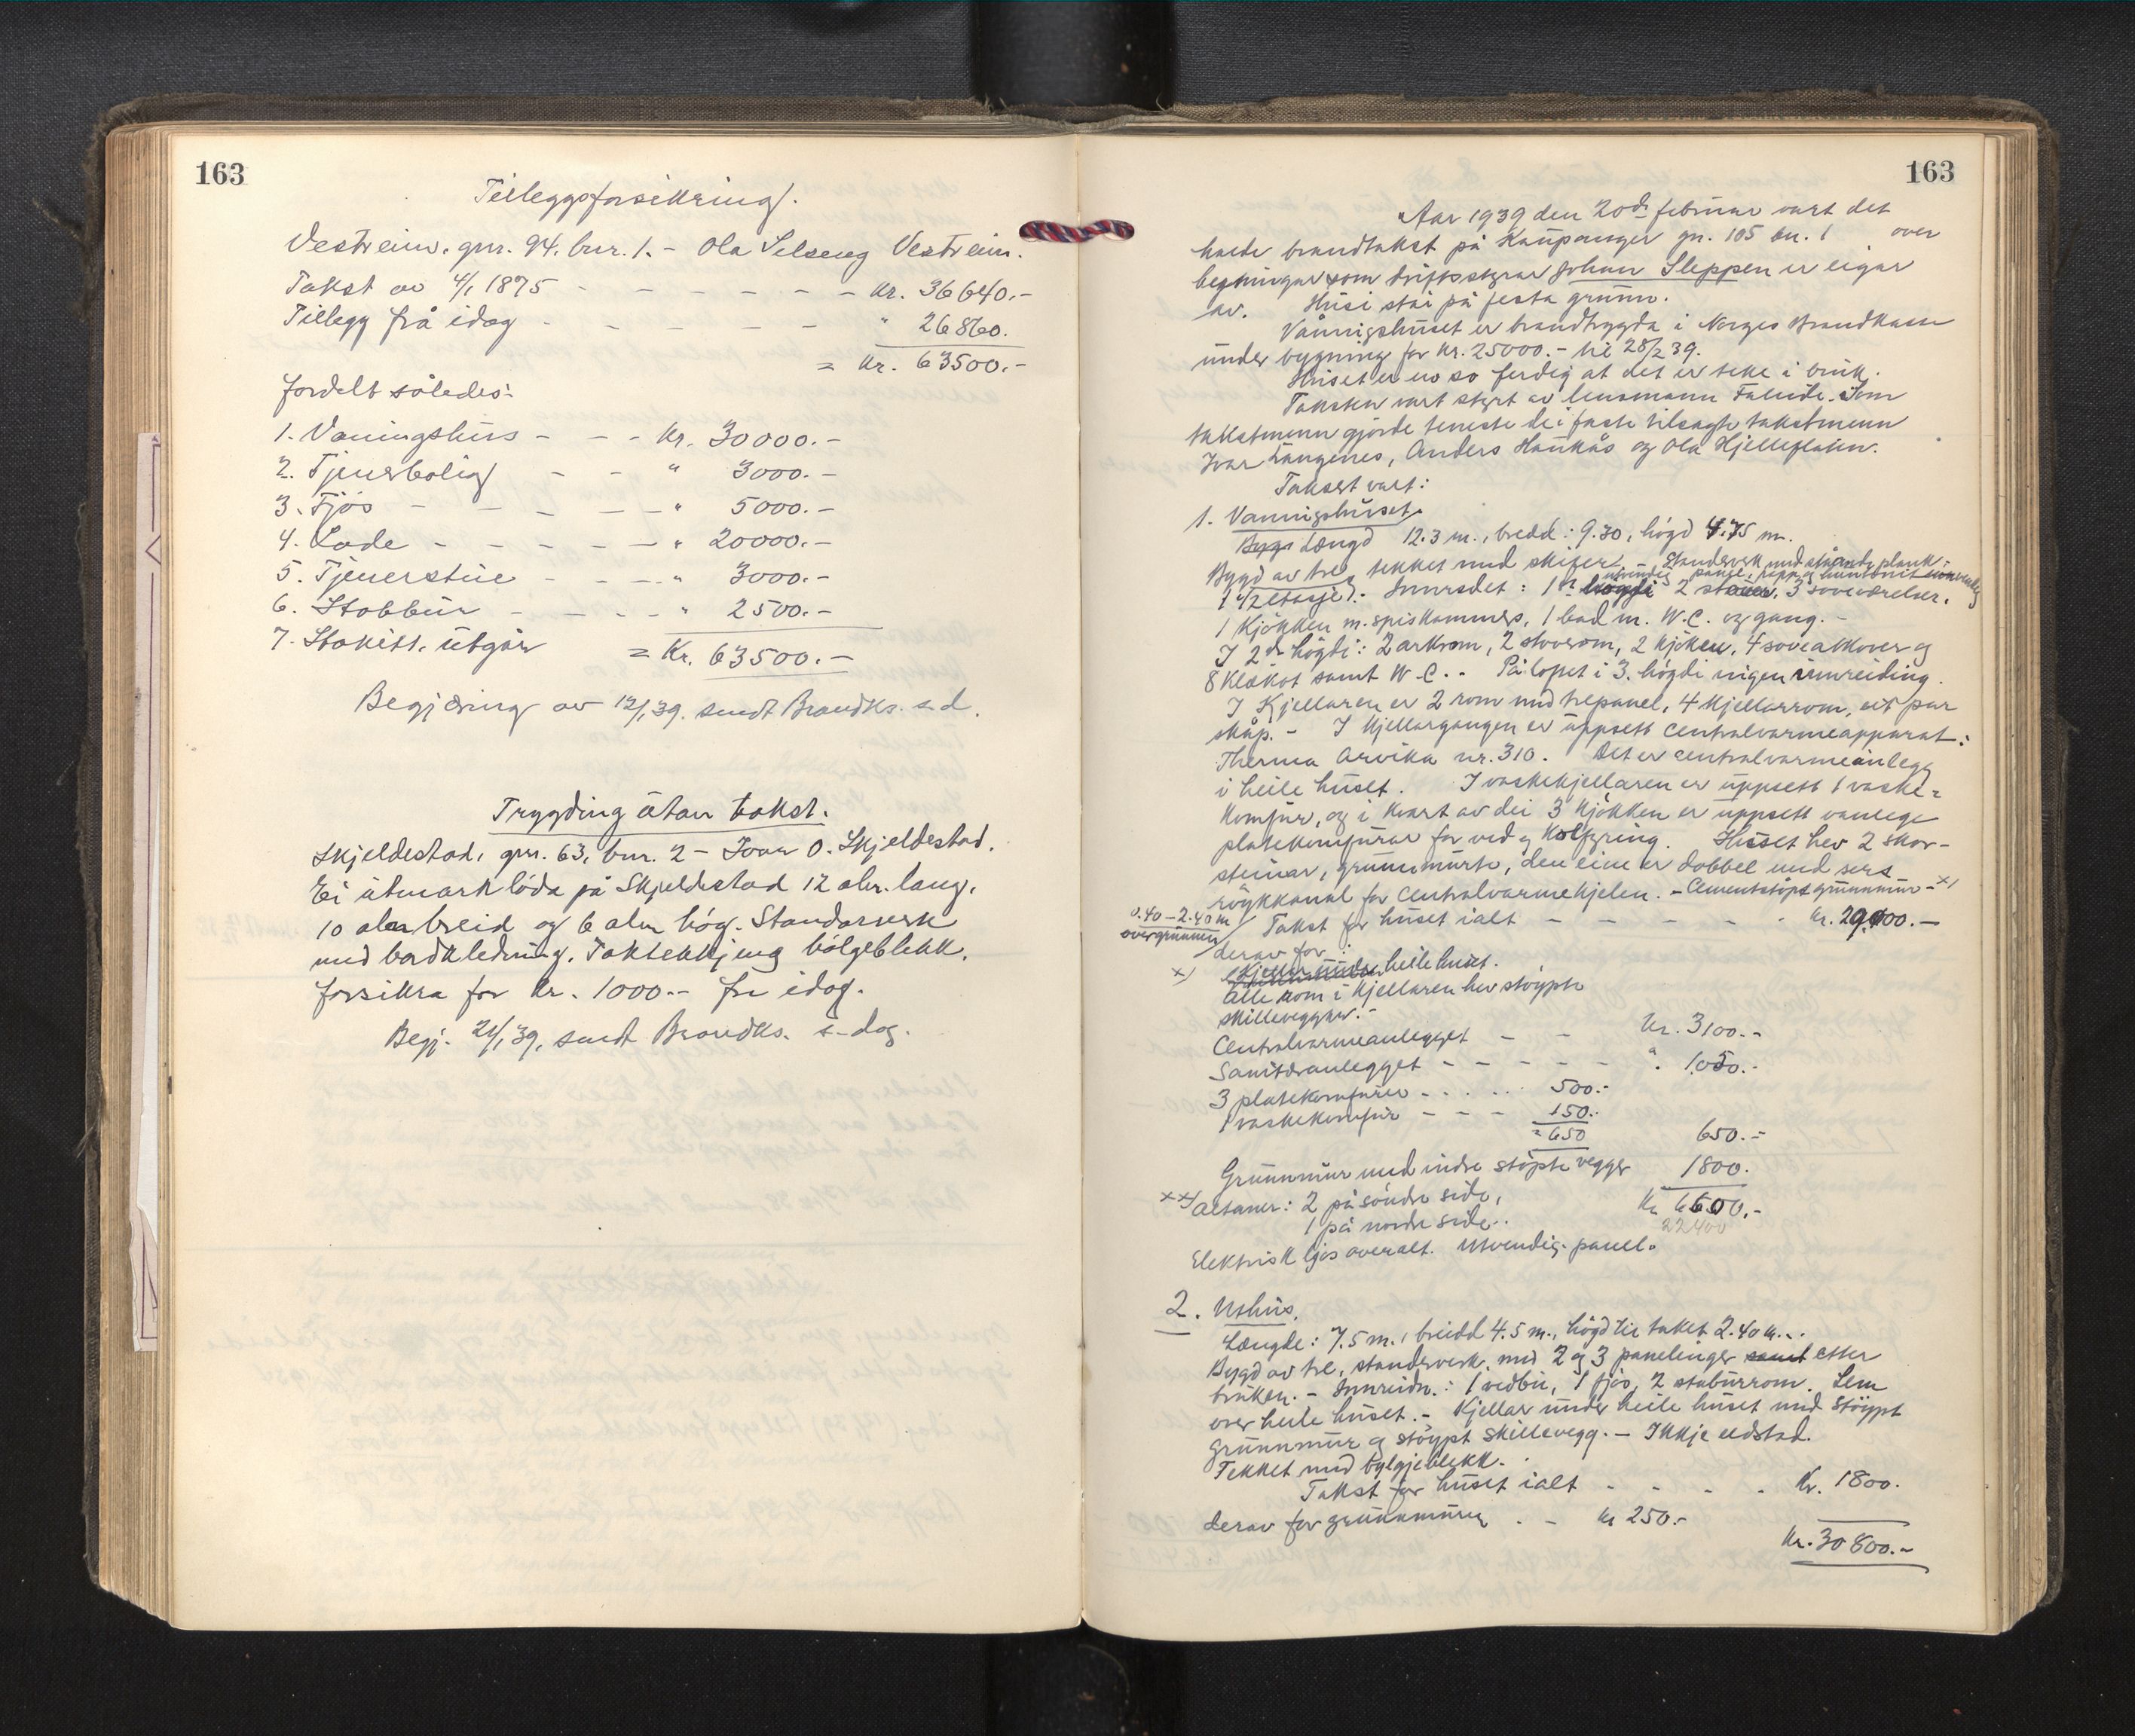 163
Tilleggsforsikring.
Vestreim, gnr. 94, bnr. 1. – Ola Selseng Vestreim.
Takst av 4/1 1875 – – – – – – – kr. 36640.–
Tillegg frå idag – – – – – – " 26860.
= Kr. 63500.–
fordelt således:
1. Vaningshus – – – Kr. 30000.–
2. Tjenerbolig – – " 3000.–
3. Fjøs – – – – – – " 5000.–
4. Lade – – – – – – " 20000.–
5. Tjenerstue – – – – " 3000.–
6. Stabbur – – – – " 2500.–
7. Stakitt. utgår = Kr. 63500.–
Begjæring av 12/1 39. sendt Brandks. s.d.
Trygding utan takst.
Skjeldestad, gnr. 63, bnr. 2 – Ivar O. Skjeldestad.
Ei utmarkløda på Skjeldestad 12 aln. lang,
10 alen breid og 6 alen høg. Standarverk
med bordkledning. Taktekkjing bølgeblekk.
forsikra for kr. 1000.– fra idag.
Begj. 21/1 39, sendt Brandks. s-dag.
163
Aar 1939 den 20de februar vart det
halde brandtakst på Kaupanger gn. 105 bn. 1 over
bygningar som driftsstyrar Johan Sleppen er eigar
av. Husi står på festa grunn.
Våningshuset er brandtrygda i Norges Brandkasse
under bygning for kr. 25000.– til 28/2 39.
Huset er no so ferdig at det er teke i bruk.
Taksten vart styrt av lensmann Faleide. Som
takstmenn gjorde teneste dei faste tilsagte takstmenn
Ivar Langenes, Anders Haukås og Ola Hjelleflaten.
Taksert vart:
1. Vaaningshuset.
Bygd Længd 12.3 m., bredd: 9.30, högd 4.75 m.
Bygd av tre, tekket med skifer. Standverk med stående plank:
utvendig panel, papp og
1 1/2 etasje. – Innreidet: 1ste högdi 2 stover, 3 soveværelser,
1 kjökken m. spiskammers, 1 bad m. W.C. og gang. –
I 2dre högdi: 2 arkrom, 2 stoverom, 2 kjöken, 4 sovealkover og
8 klækot samt W.C.. På loftet i 3. högdi ingen innreiding.
I Kjellaren er 2 rom med trepanel, 4 kjellarrom, eit par
skåp. – I kjellargangen er uppsett centralvarmeapparat:
Therma Arvika nr. 310. Det er centralvarmeanlegg
i heile huset. I vaskekjellaren er uppsett 1 vaske-
komfur, og i kvart av dei 3 kjökken er uppsett vanlege
platekomfurar for ved og kolfyring. Huset hev 2 skor-
steinar, grunnmurte, den eine er dobbel med sers
röykkanal for centralvarmekjelen. – Cementstöpt grunnmur – x)
0.40 – 2.40 m
over grunnen
Takst for huset ialt – – – – – kr. 29000.–
derav for:
x) Kjellar under heile huset.
Alle rom i kjellaren hev støypte
skilleveggar. –
Centralvarmeanlegget – – Kr. 3100.–
Sanitæranlegget – – – – – " 1050.–
3 platekomfurer – . . . . 500.–
1 vaskekomfur – – – 150.–
= 650 650.–
Grunnmur med indre stöpte vegger 1800.
xx) Altaner: 2 på söndre side, Kr 6600.–
1 på nordre side.. 22400
Elektrisk ljos overalt. Utvendig panel.
2. Uthus.
Længde: 7.5 m., breidd 4.5 m., högd til taket 2.40 m..
Bygd av tre, standerverk, med 2 og 3 panelinger samt etter
bruken. – Innreidn.: 1 vedbu, 1 fjös, 2 staburrom. Lem
over heile huset. – Kjellar under heile huset med støypt
grunnmur og støypt skillevegg. – Ikkje eldstad.
Tekket med bylgjeblekk.
Takst for huset ialt – – – . Kr. 1800.
derav for grunnmuren . – kr 250.–
Kr. 30800.–